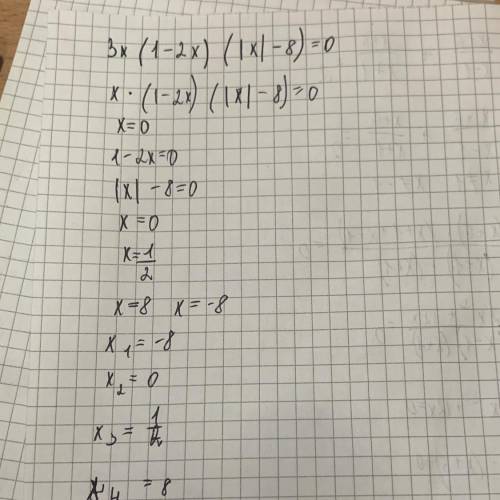 3x(1-2x)(|x|-8)=0
x·(1-2x)(|x|-8)=0
x=0
1-2x=0
|x|-8=0
x=0
x=1/2
x=8 x=-8
x₁=-8
x₂=0
x₃=1/2
x₄=8